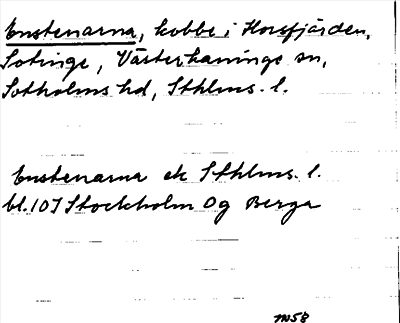 Enstenarna, kobbe i Horsfjärden,
Sotinge, Västerhaninge sn,
Sotholms hd, Sthlms. l.
Enstenarna ek Sthlms. l.
bl. 107 Stockholm Og Berga
M58